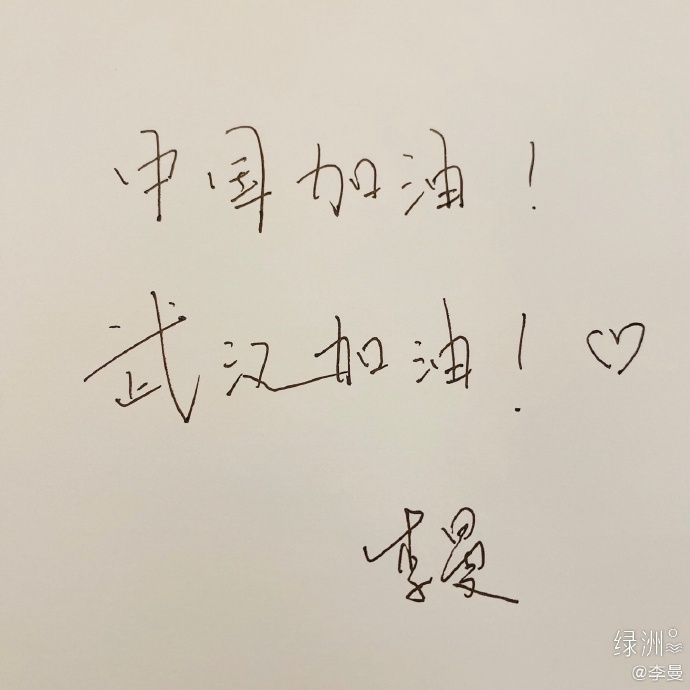 中国加油！
武汉加油！♡
李曼
绿洲
@李曼